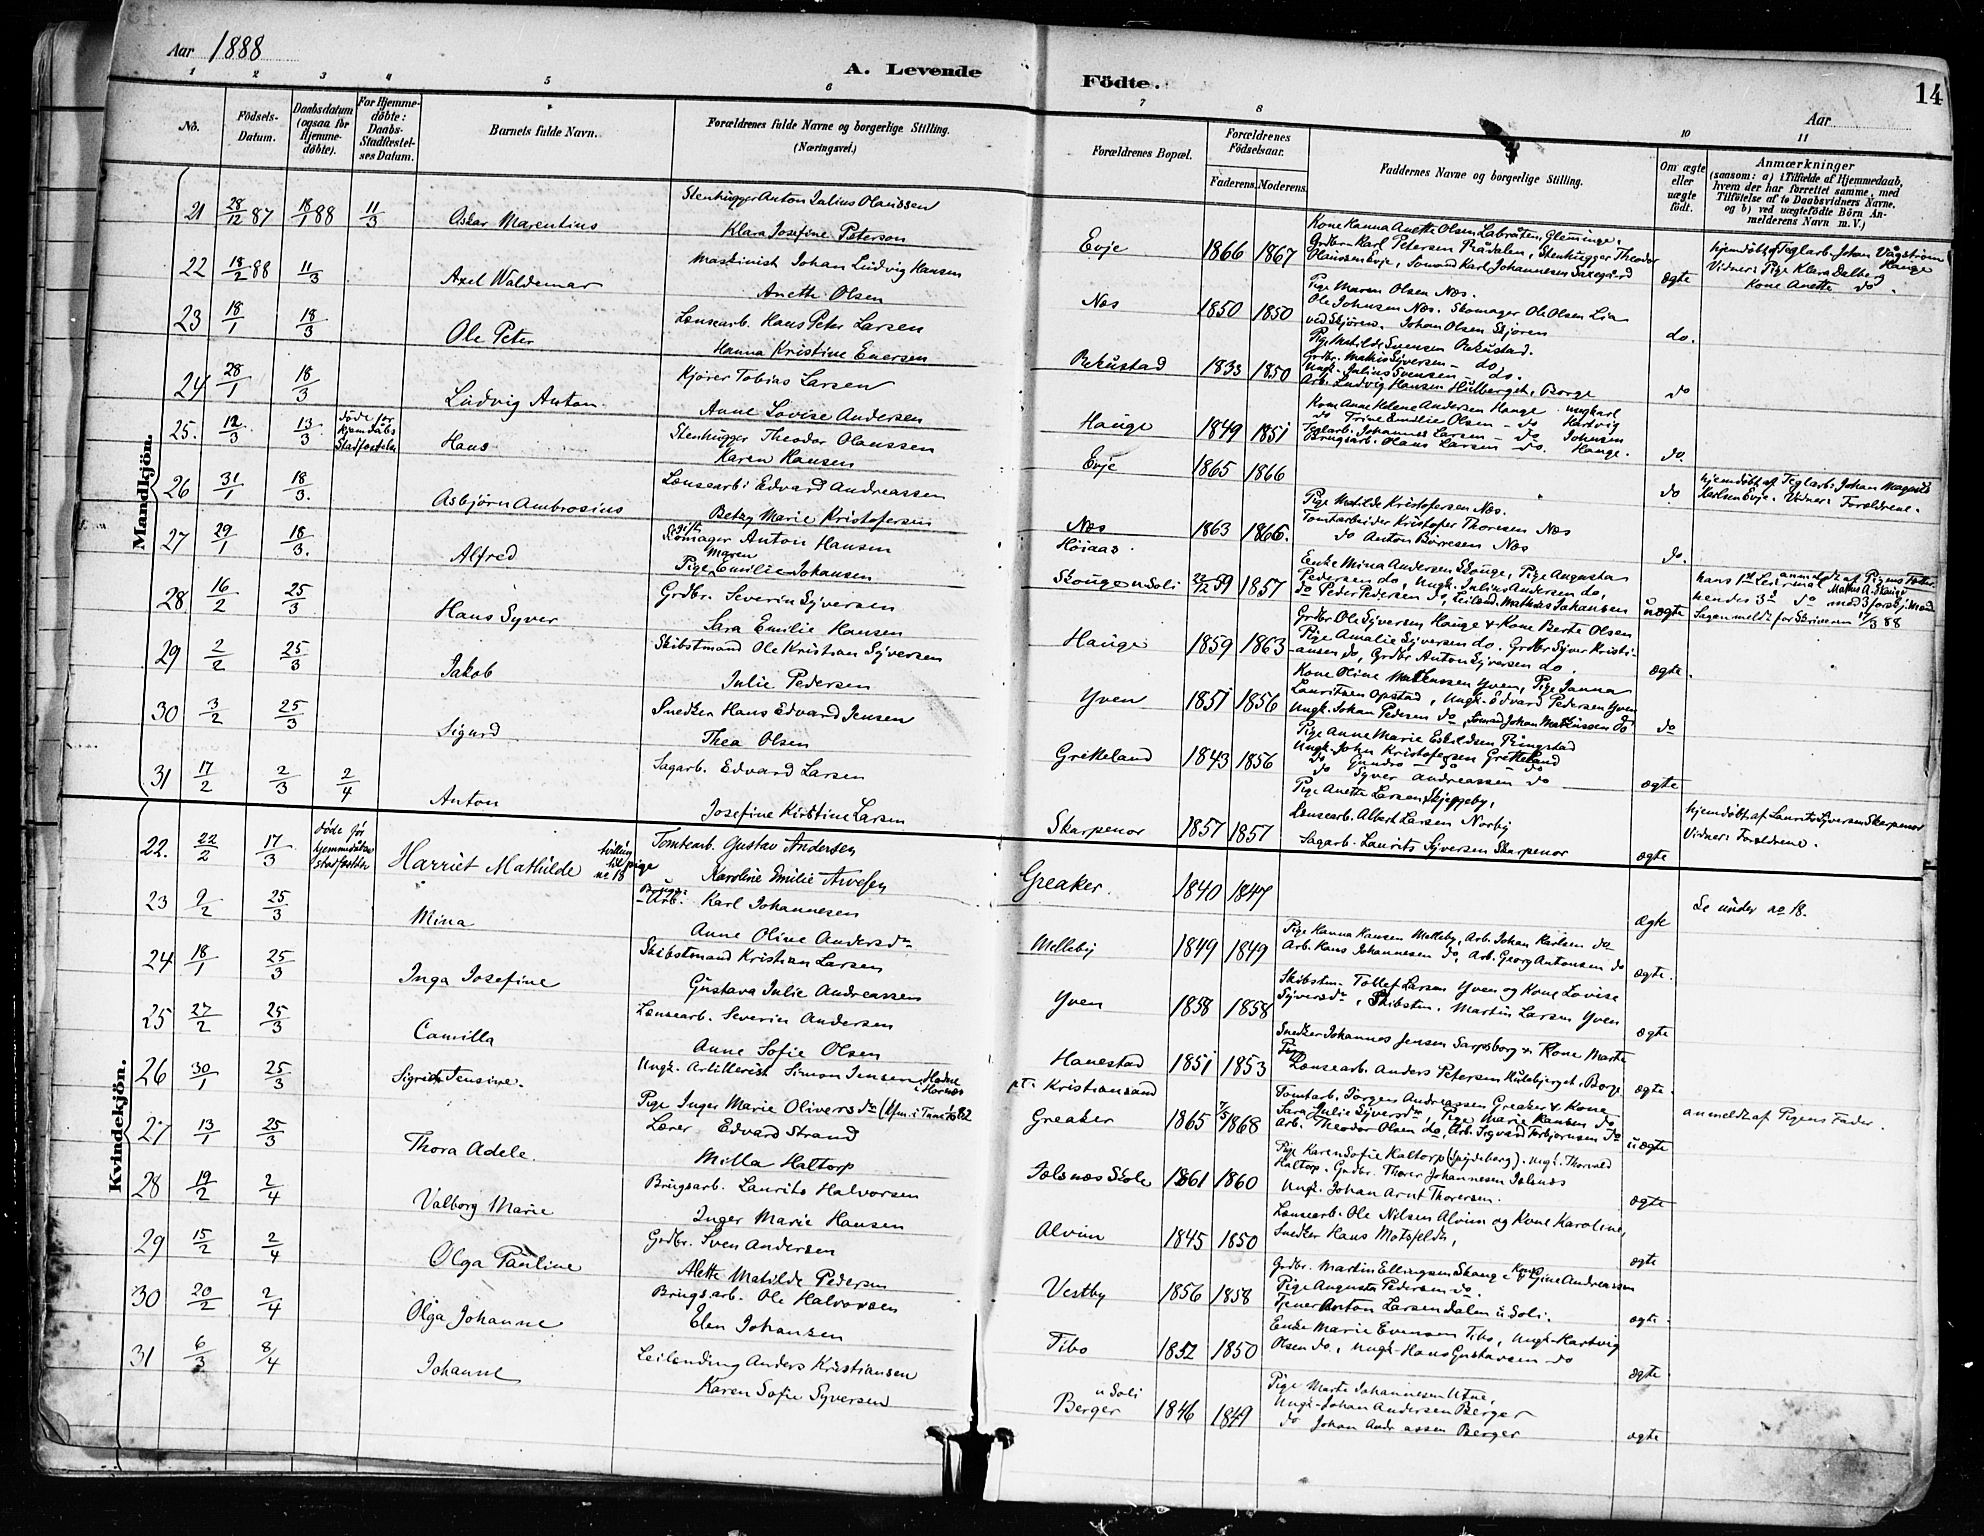 Aar 1888
A. Levende Födte.
14
Aar
1 2 3 4 5 6 7 8 10 11
No.
Födsels-Datum.
Daabsdatum (ogsaa for Hjemme-döbte).
For Hjemme-döbte: Daabs-Stadfæstel-ses Datum.
Barnets fulde Navn.
Forældrenes fulde Navne og borgerlige Stilling. (Næringsvei.)
Forældrenes Bopæl.
Forældrenes Födselsaar.
Faderens. Moderens.
Faddernes Navne og borgerlige Stilling.
Om ægte eller uægte födt.
Anmærkninger (saasom: a) i Tilfælde af Hjemmedaab, hvem der har forrettet samme, med Tilföielse af to Daabsvidners Navne, og b) ved uægtefödte Börn An-melderens Navn m. V.)
Mandkjön.
21 28/12 87 18/1 88 11/3 Oskar Marentius
Stenhugger Anton Julius Olaussen
Klara Josefine Peterson
Evje 1866 1867
Kone Hanna Anette Olsen Labråten, Glemminge.
Grdbr. Karl Petersen Rådalen, Stenhugger Theodor
Olaussen Evje, Karl Johannesen
ægte
hjemdöbt af Teglarb. Johan Vågström Hauge
Vidner: Pige Klara Dalberg
Kone Anette do.
22 18/2 88 11/3 Axel Waldemar
Maskinist Johan Ludvig Hansen
Anette Olsen
Næs 1850 1850
Pige Maren Olsen Næs.
Ole Johnsen Næs. Skomager Ole Olsen Lia
ved Skjören. Johan Olsen Skjören
do.
23 18/1 18/3 Ole Peter
Lænsearb. Hans Peter Larsen
Hanna Kristine Enersen
Rekustad 1833 1850
Pige Matilde Svensen Rekustad.
Grdbr. Mathis Syversen - do
Ungk. Julius Svensen - do.
Arb. Ludvig Hansen Hulberget, Borge
do
24 28/1 18/3 Ludvig Anton
Kjörer Tobias Larsen
Anne Lovise Andersen
Hauge 1849 1851
Kone Anne Helene Andersen Hauge Ungkarl
do Trine Emilie Olsen - do Hartvig
Teglarb. Johannes Larsen - do Johnsen
Brugsarb. Olaus Larsen - do. Hauge.
do.
25. 12/3 13/3 döde før hjemdåbs Stadfæstelse Hans
Stenhugger Theodor Olaussen
Karen Hansen
Evje 1865 1866
do
hjemdöbt af Teglarb. Johan Magnus
Karlsen Evje. Vidner: Forældrene.
26 31/1 18/3. Asbjörn Ambrosius
Lænsearb: Edvard Andreassen
Betzy Marie Kristofersen
Næs 1863 1866.
Pige Matilde Kristofersen Næs.
Tomtarbeider Kristofer Thoresen Næs
do Anton Börresen Næs
do.
27 29/1 18/3. Alfred
gift
Skomager Anton Hansen
Pige Maren Emilie Johansen
Höiaas.
Skouge u Soli 59 1857
Enke Mina Andersen Skouge, Pige Augusta
Pedersen do, Ungk. Julius Andersen do,
do Peder Pedersen do, Leiland. Mathias Johansen
uægte
anmeldt af Pigens Fader
hans 1st Leiermål
hendes 3d do med 3 forskj. Mænd
Sagen meldt for Skriveren 17/3 88
28 16/2 25/3 Hans Syver
Grdbr. Severin Syversen
Sara Emilie Hansen
Hauge 1859 1863
Grdbr Ole Syversen Hauge & Kone Berte Olsen
Pige Amalie Syversen do. Grdbr Syver Kristi-
ansen do, Grdbr Anton Syversen do.
ægte.
29 2/2 25/3 Jakob
Skibstmand Ole Kristian Syversen
Julie Pedersen
Yven 1851 1856
Kone Oline Mathussen Yven, Pige Janna
Lauritsen Opstad, Ungk. Edvard Pedersen Yven
Ungk. Johan Pedersen do, Sömand Johan Mathussen do
do
30 3/2 25/3 Sigurd
Snedker Hans Edvard Jensen
Thea Olsen
Grekeland 1843 1856
Pige Anne Marie Eskildsen Ringstad
Ungk. John Kristofersen Grekeland
do Gundro - do - do
do Syver Andreassen do
ægte
31 17/2 2/3 2/4 Anton
Sagarb. Edvard Larsen
Josefine Kirstine Larsen
Skarpenor 1857 1857
Pige Anette Larsen Skjeggeby,
Lænsearb. Albert Larsen Norby
Sagarb. Laurits Syversen Skarpenor
ægte
hjemdöbt af Laurits Syversen Skarpenor
Vidner: Forældrene.
Kvindekjön.
22. 22/2 17/3 döde før hjemmedåbens stadfæstelse Harriet Mathilde tvilling til pige no 18
Tomtearb. Gustav Andersen
Karoline Emilie Arvesen
Greaker. 1840 1847
ægte
Se under no 18.
23 9/2 25/3 Mina
Brugs-Arb: Karl Johannesen
Anne Oline Andersdr
Melleby 1849 1849
Pige Hanna Hansen Melleby, Arb. Johan Karlsen do
Arb. Hans Johannesen do, Arb. Georg Antonsen do
ægte.
24 18/1 25/3 Inga Josefine
Skibstmand Kristian Larsen
Gustava Julie Andreassen
Yven 1858 1858
Skibstm. Tollef Larsen Yven og Kone Lovise
Syversdr, Skibstm. Martin Larsen Yven
ægte
25 27/2 25/3 Camilla
Lænsearb. Severin Andersen
Anne Sofie Olsen
Hanestad 1851 1853
Snedker Johannes Jensen Sarpsborg & Kone Marte
Lænsearb. Anders Petersen Hulebjerget, Borge
ægte.
26 30/1 25/3 Sigrid Jensine.
Ungk. Artillerist Simon Jensen
Pige Inger Marie Oliversdr
pt. Kristiansand
Greaker 1865 7/5 1868
Tomtarb. Jörgen Andreassen Greaker & Kone
Sara Julie Syversdr, Pige Marie Hansen do,
Arb. Theodor Olsen do, Arb. Sigvard Torbjörnsen do
uægte
anmeldt af Pigens Fader.
27 13/1 25/3 Thora Adele.
Lærer Edvard Strand
Milla Haltorp
Jolsnæs Skole 1861 1860
Pige Karen Sofie Haltorp (Spydeberg). Ungk. Thorvald
Haltorp. Grdbr. Thorer Johannesen Jolsnæs
Ungk. Johan Arnt Thorersen.
ægte
28 19/2 2/4 Valborg Marie
Brugsarb. Laurits Halvorsen
Inger Marie Hansen
Alvim 1845 1850
Lænsearb. Ole Nilsen Alvim og Kone Karoline,
Snedker Hans Motzfeldt,
ægte
29 15/2 2/4 Olga Pauline
Grdbr. Sven Andersen
Alette Matilde Pedersen
Vestby 1856 1858
Grdbr. Martin Ellingsen Skouge & Kone Gine Andreassen
Pige Augusta Pedersen do.
Tjener Anton Larsen Dalen u Soli.
ægte.
30 20/2 2/4 Olga Johanne
Brugsarb. Ole Halvorsen
Elen Johansen
Tibo 1852 1850
Enke Marie Evensen Tibo, Ungk. Hartvig
Olsen do, Ungk. Hans Gustavsen do
ægte
31 6/3 8/4 Johanne
Leilending Anders Kristiansen
Karen Sofie Syversen
u Soli
Berger 1846 1849
Pige Marte Johannesen Utne,
Ungk. Johan Andersen Berger
do Johan Andreassen Berger
ægte